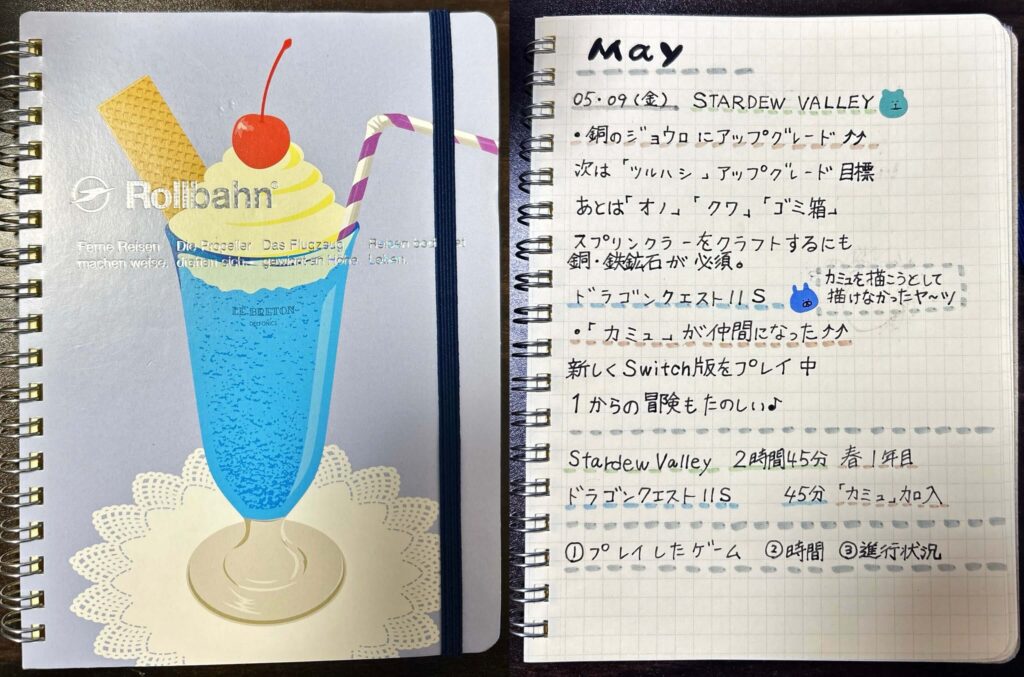 Rollbahn
Ferne Reisen Die Propeller Das Flugzeug
machen weise. drehen sich. gewinnen Höhe.
LE BRETON
May
05・09(金) STARDEW VALLEY
・銅のジョウロにアップグレード↑↑
次は「ツルハシ」アップグレード目標
あとは「オノ」「クワ」「ゴミ箱」
スプリンクラーをクラフトするにも
銅・鉄鉱石が必須。
ドラゴンクエスト11S
カミュを描こうとして
描けなかったヤ〜ツ
・「カミュ」が仲間になった↑↑
新しくSwitch版をプレイ中
1からの冒険もたのしい♪
Stardew Valley 2時間45分 春1年目
ドラゴンクエスト11S 45分 「カミュ」加入
①プレイしたゲーム ②時間 ③進行状況